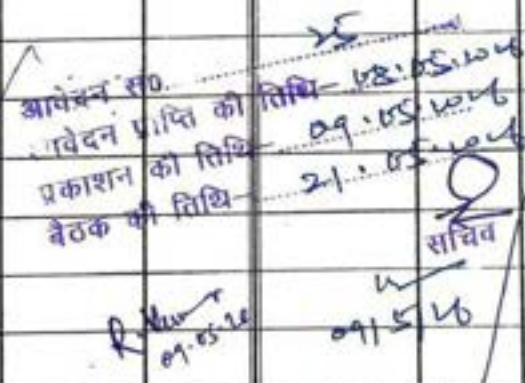 आवेदन सं0 25
आवेदन प्राप्ति की तिथि- 08.05.2026
प्रकाशन की तिथि- 09.05.2026
बैठक की तिथि- 21.05.2026
सचिव
09.05.26
09/5/26